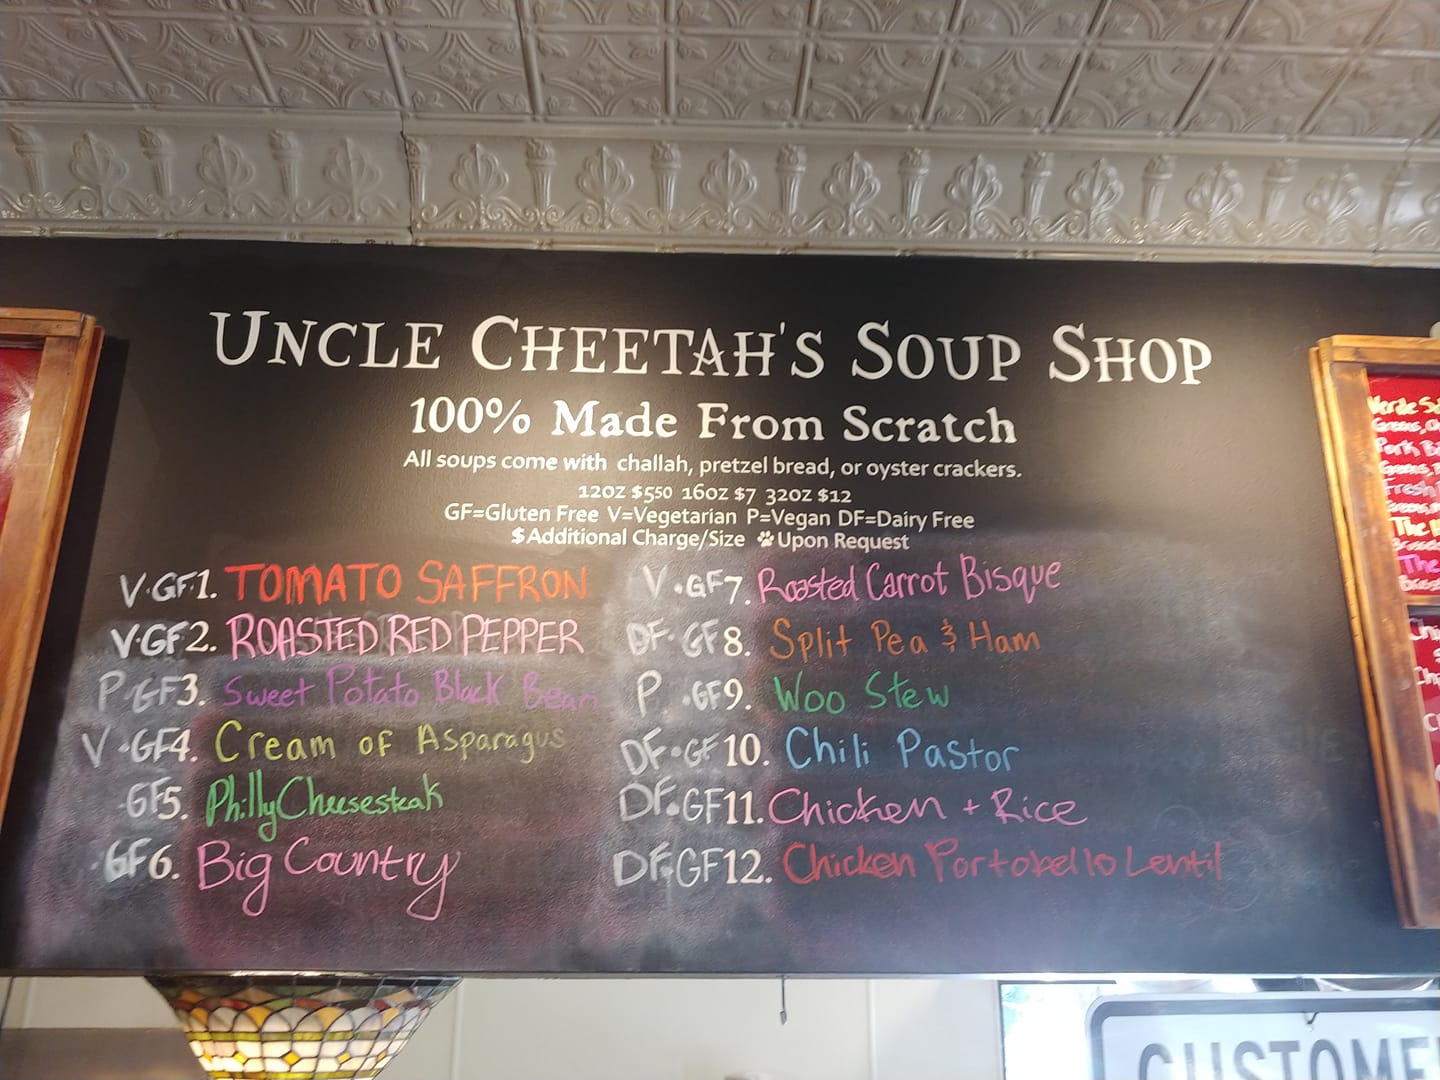 UNCLE CHEETAH'S SOUP SHOP
100% Made From Scratch
All soups come with challah, pretzel bread, or oyster crackers.
12OZ $550 16OZ $7 32OZ $12
GF=Gluten Free V=Vegetarian P=Vegan DF=Dairy Free
$ Additional Charge/Size Upon Request
V·GF·1. TOMATO SAFFRON
V·GF2. ROASTED RED PEPPER
P·GF3. Sweet Potato Black Bean
V·GF4. Cream of Asparagus
·GF5. Philly Cheesesteak
·GF6. Big Country
V·GF7. Roasted Carrot Bisque
DF·GF8. Split Pea & Ham
P·GF9. Woo Stew
DF·GF10. Chili Pastor
DF·GF11. Chicken + Rice
DF·GF12. Chicken Portobello Lentil
Verde
Greens,
Pork
Greens,
Fresh
The
The
CUSTOME